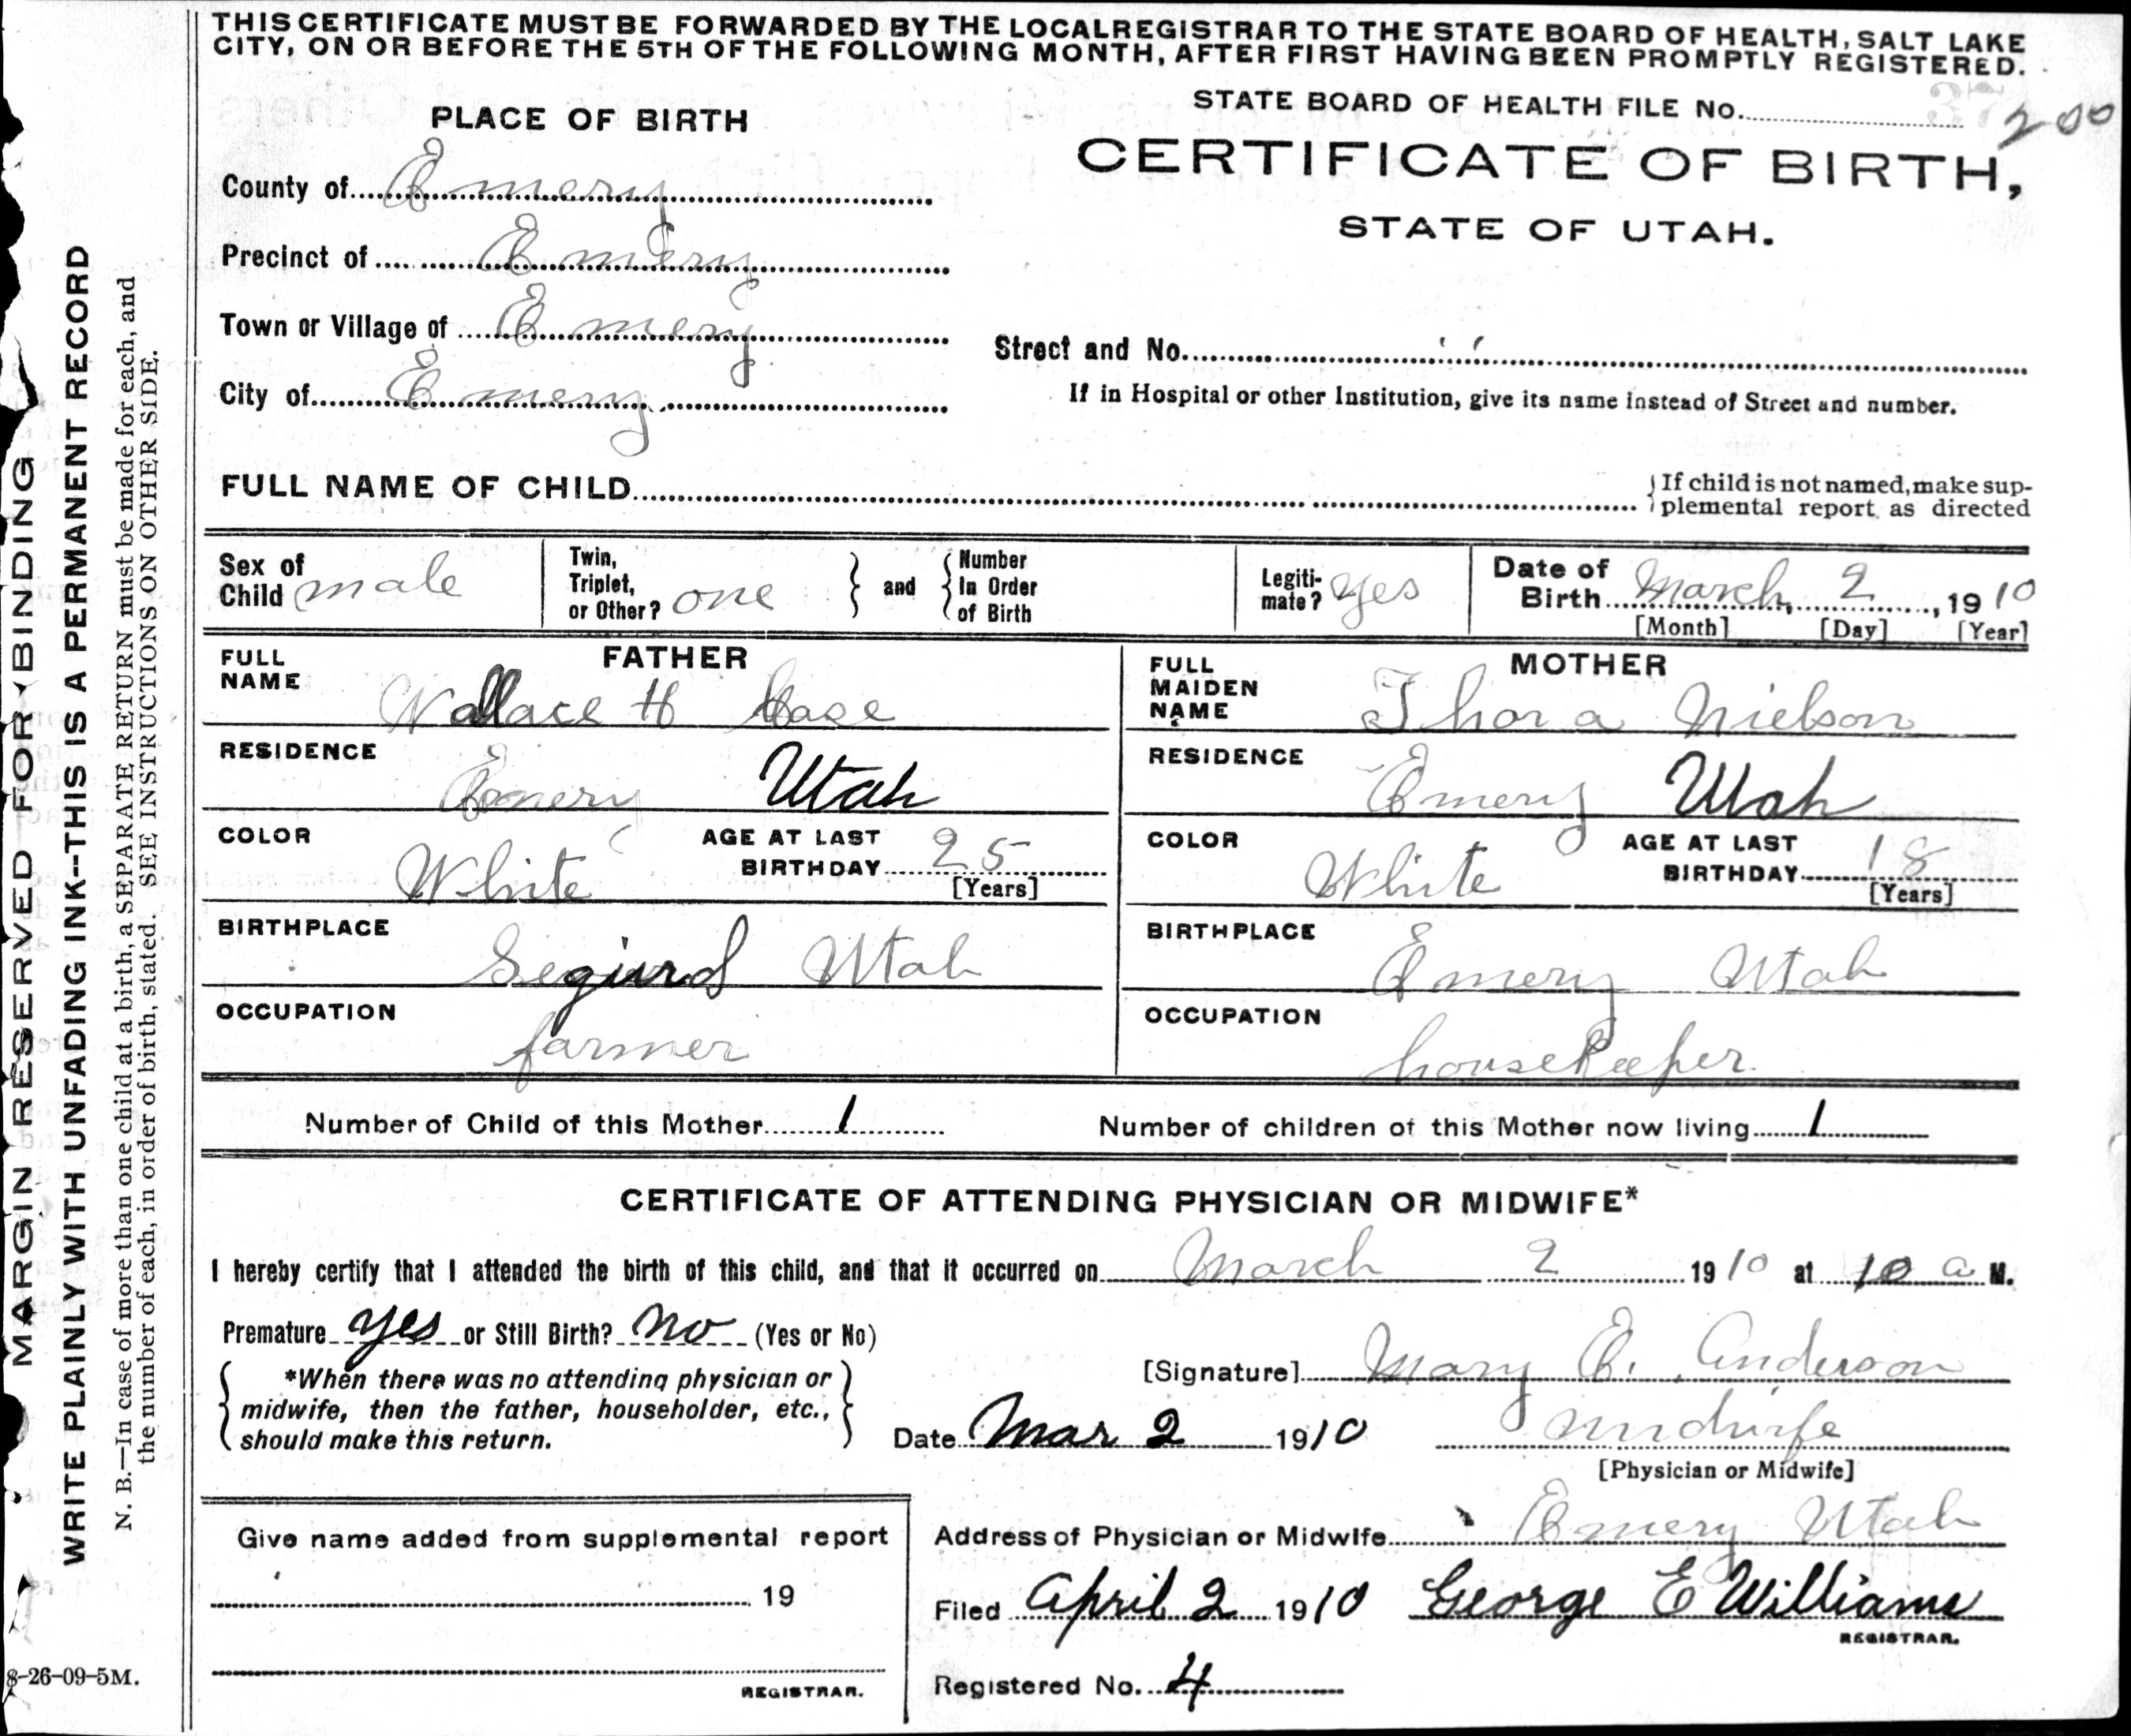 THIS CERTIFICATE MUST BE FORWARDED BY THE LOCALREGISTRAR TO THE STATE BOARD OF HEALTH, SALT LAKE
CITY, ON OR BEFORE THE 5TH OF THE FOLLOWING MONTH, AFTER FIRST HAVING BEEN PROMPTLY REGISTERED.
STATE BOARD OF HEALTH FILE No. 200
PLACE OF BIRTH
CERTIFICATE OF BIRTH,
STATE OF UTAH.
County of Emery
Precinct of Emery
Town or Village of Emery
Street and No. " 
City of Emery
If in Hospital or other Institution, give its name instead of Street and number.
FULL NAME OF CHILD
If child is not named, make sup-
plemental report as directed
Sex of Child male
Twin, Triplet, or Other? one and Number In Order of Birth
Legiti-mate? yes
Date of Birth March 2, 1910
[Month] [Day] [Year]
FATHER
FULL NAME Wallace H Case
RESIDENCE Emery Utah
COLOR White AGE AT LAST BIRTHDAY 25
[Years]
BIRTHPLACE Segiurd Utah
OCCUPATION farmer
MOTHER
FULL MAIDEN NAME Thora Nielson
RESIDENCE Emery Utah
COLOR White AGE AT LAST BIRTHDAY 18
[Years]
BIRTHPLACE Emery Utah
OCCUPATION housekeeper
Number of Child of this Mother 1 Number of children of this Mother now living 1
CERTIFICATE OF ATTENDING PHYSICIAN OR MIDWIFE*
I hereby certify that I attended the birth of this child, and that it occurred on March 2 1910 at 10 a M.
Premature yes or Still Birth? no (Yes or No)
*When there was no attending physician or
midwife, then the father, householder, etc.,
should make this return.
[Signature] Mary E. Anderson
Date Mar 2 1910 midwife
[Physician or Midwife]
Give name added from supplemental report
19
REGISTRAR.
Address of Physician or Midwife Emery Utah
Filed April 2 1910 George E Williams
REGISTRAR.
Registered No. 4
8-26-09-5M.
MARGIN RESERVED FOR BINDING
WRITE PLAINLY WITH UNFADING INK--THIS IS A PERMANENT RECORD
N. B.—In case of more than one child at a birth, a SEPARATE RETURN must be made for each, and
the number of each, in order of birth, stated. SEE INSTRUCTIONS ON OTHER SIDE.